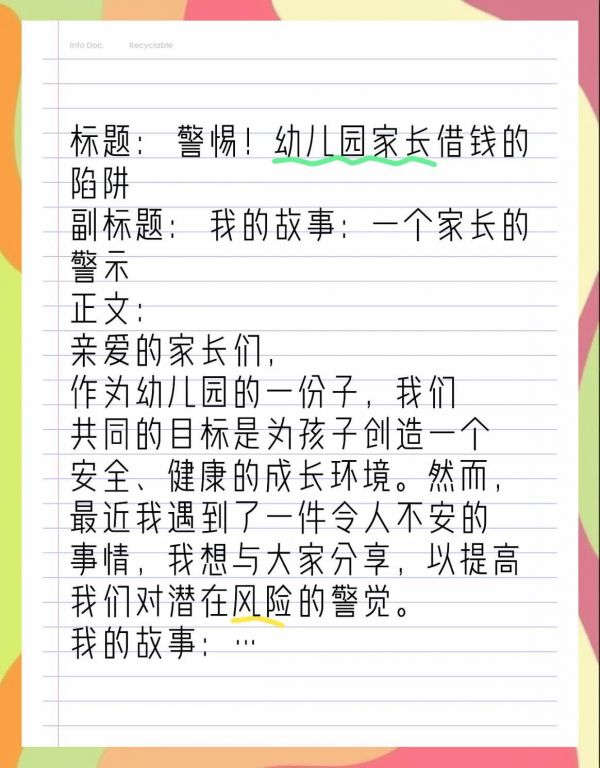 Info Doc. Recyclable
标题： 警惕！幼儿园家长借钱的
陷阱
副标题： 我的故事：一个家长的
警示
正文：
亲爱的家长们，
作为幼儿园的一份子，我们
共同的目标是为孩子创造一个
安全、健康的成长环境。然而，
最近我遇到了一件令人不安的
事情，我想与大家分享，以提高
我们对潜在风险的警觉。
我的故事：…